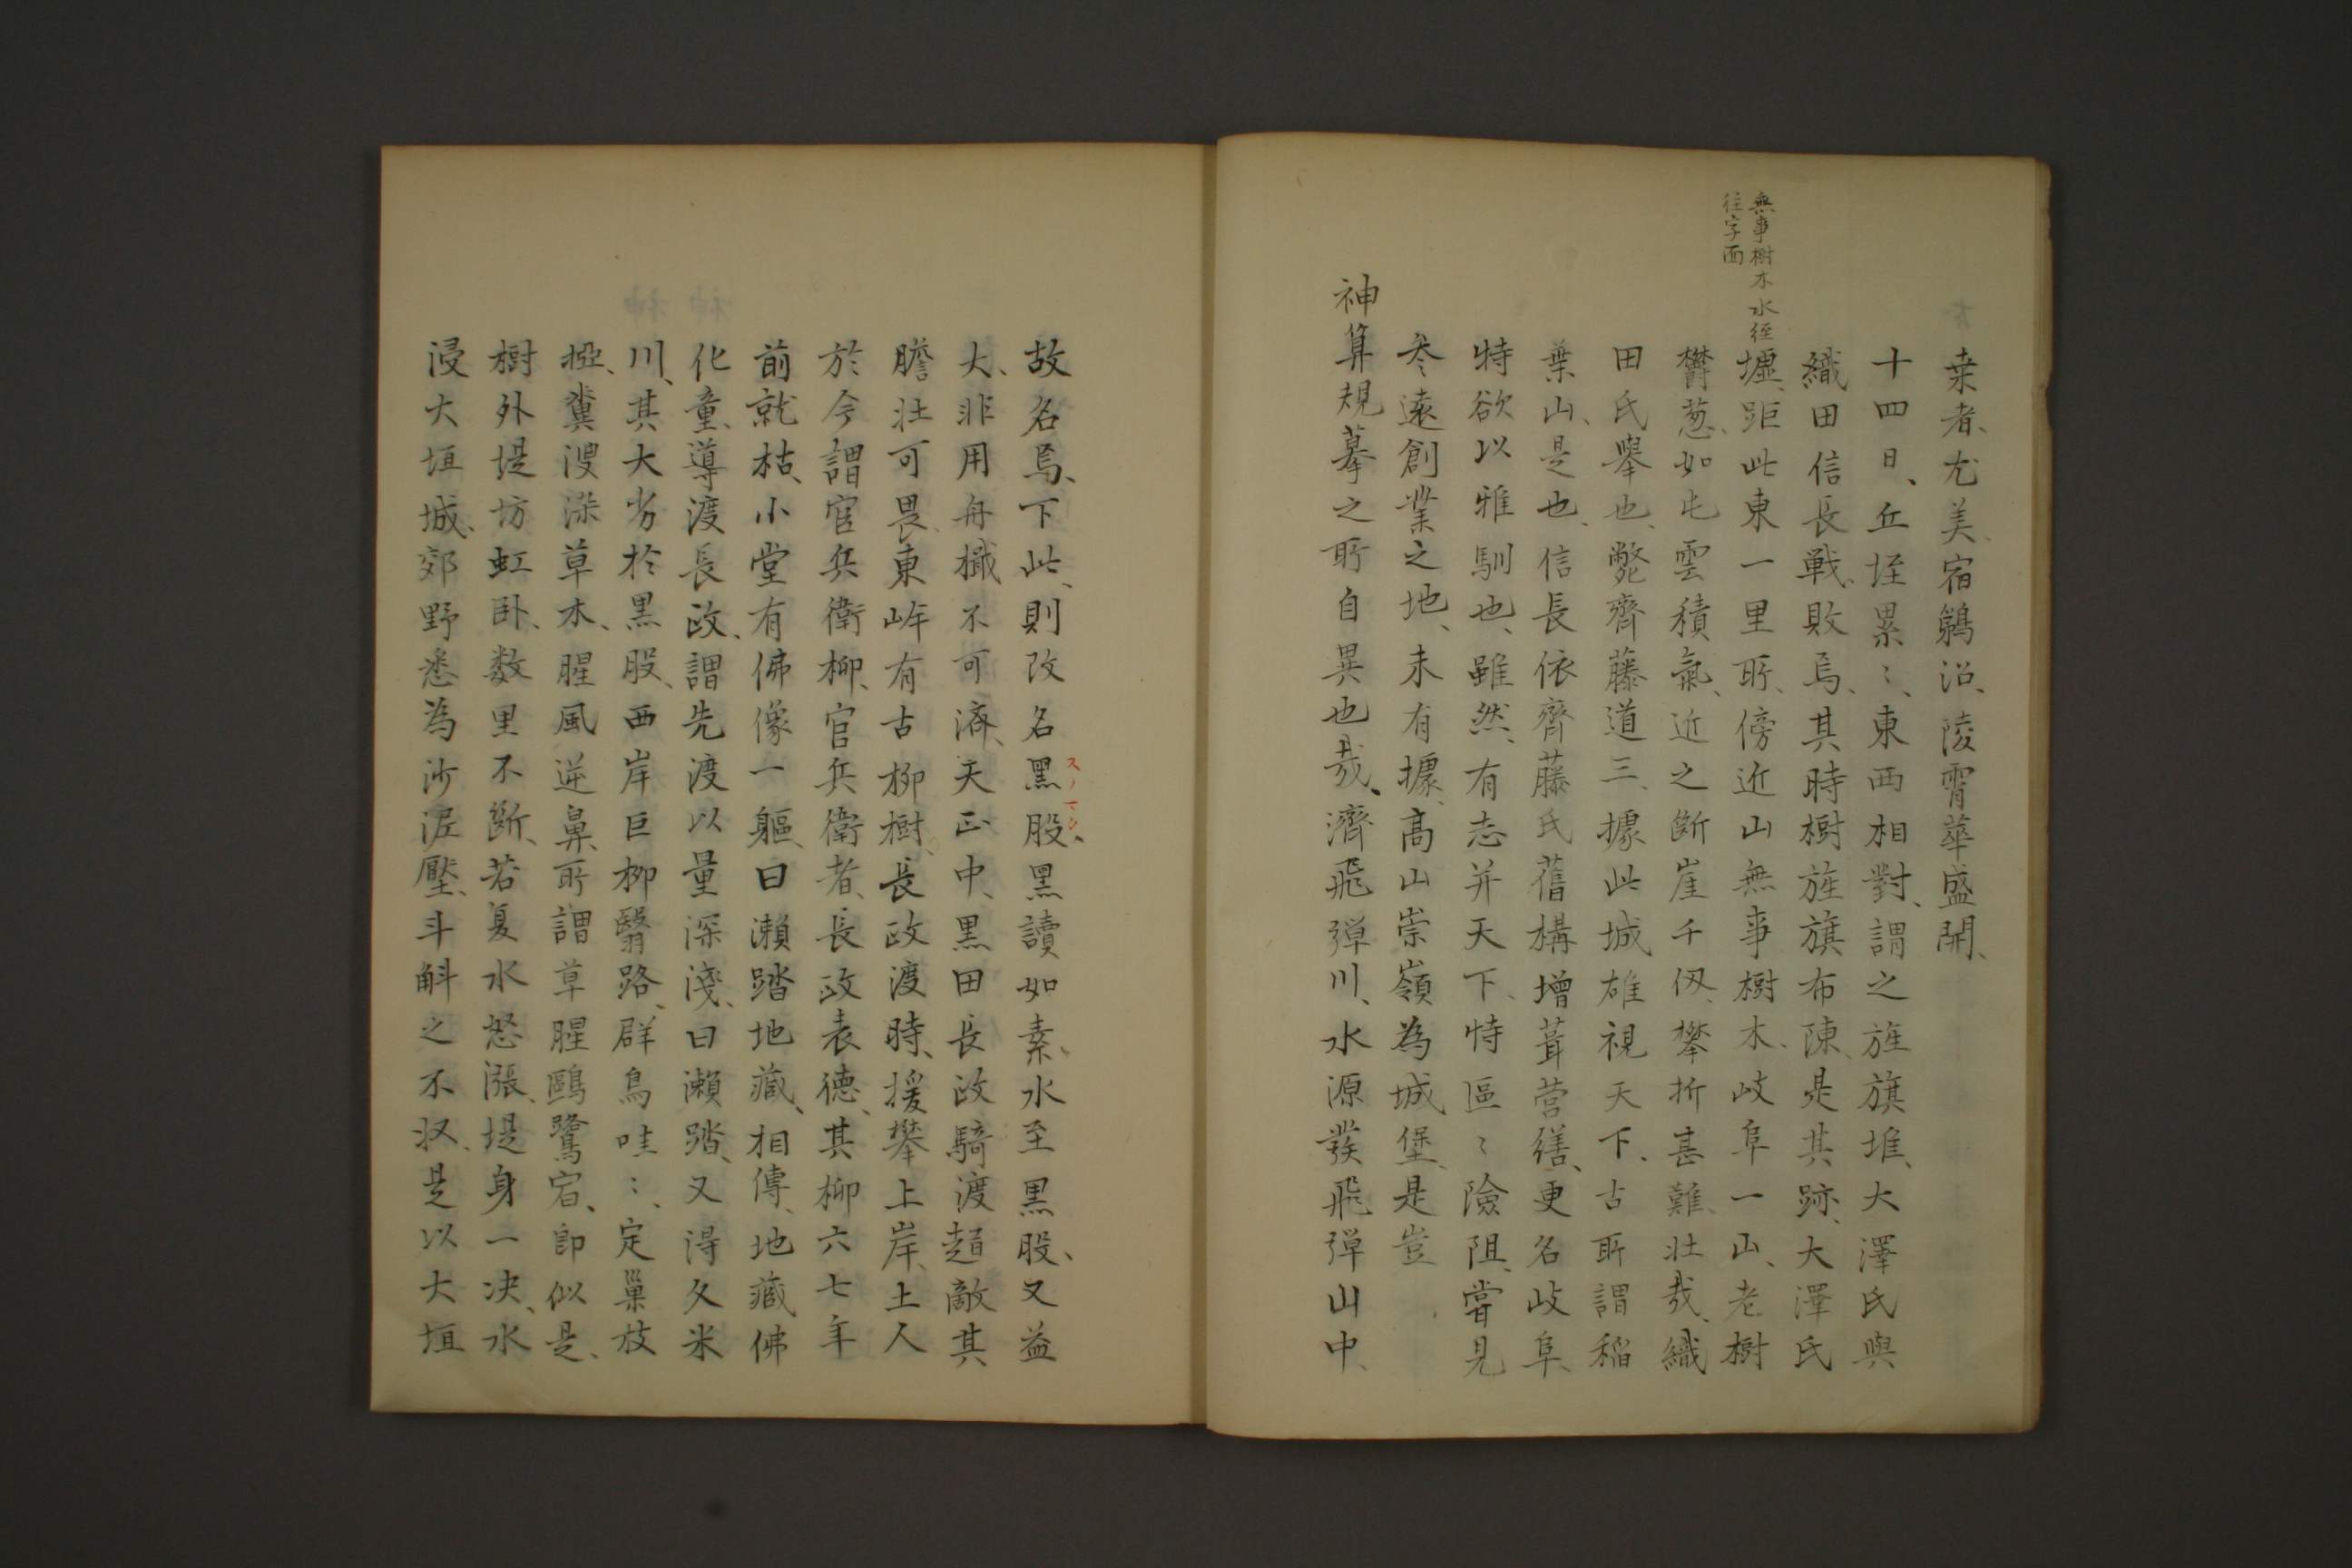 桒者、尤美、宿鵜沼、陵霄華盛開、
十四日、丘垤累〻、東西相對、謂之旌旗堆、大澤氏與
織田信長戰、敗焉、其時樹旌旗布陳、是其跡、大澤氏
墟、距此東一里所、傍近山無事樹木、岐阜一山、老樹
無事樹木水經
往字面
欝葱、如屯雲積氣、近之斷崖千仭、攀折甚難、壯哉、織
田氏擧也、斃齊藤道三、據此城雄視天下、古所謂稲
葉山、是也、信長依齊藤氏舊構增葺营繕、更名岐阜、
特欲以雅馴也、雖然、有志并天下、恃區〻險阻、嘗見
参遠創業之地、未有據高山崇嶺為城堡、是豈
神算規摹之所自異也哉、濟飛彈川、水源發飛彈山中、
故名焉、下此、則改名黑股、黑讀如素、水至黑股、又益
スノマタ
大、非用舟檝不可濟、天正中、黑田長政騎渡趨敵其
膽壯可畏、東岸有古柳樹、長政渡時、援攀上岸、土人
於今謂官兵衛柳、官兵衛者、長政表德、其柳六七年
前就枯、小堂有佛像一軀、曰瀬踏地藏、相傳、地藏佛
化童、導渡長政、謂先渡以量深淺、曰瀬踏、又得久米
川、其大劣於黑股、西岸巨柳翳路、群鳥哇〻、定巢枝
椏、糞溲深草木、腥風逆鼻、所謂草腥鷗鷺宿、即似是、
樹外堤坊虹卧、数里不斷、若夏水怒漲、堤身一决、水
浸大垣城、郊野悉為沙泥壓、斗斛之不収、是以大垣